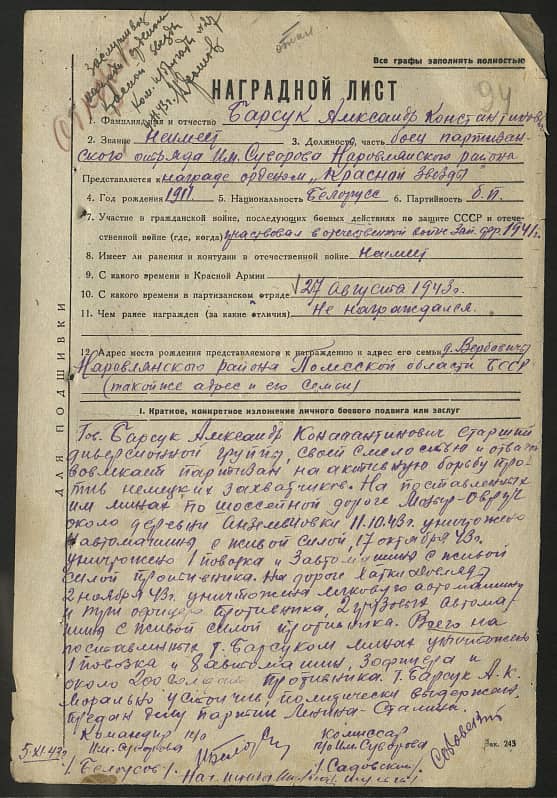 заслуживает
награды орденом
Красной Звезды
Ком. бригады
Все графы заполнять полностью
94
НАГРАДНОЙ ЛИСТ
1. Фамилия, имя и отчество Барсук Александр Константинович
2. Звание Неимеет 3. Должность, часть боец партизан-
ского отряда им. Суворова Наровлянского района
Представляется к награде орденом „Красной Звезды"
4. Год рождения 1911. 5. Национальность Белорусс 6. Партийность б.п.
7. Участие в гражданской войне, последующих боевых действиях по защите СССР и отече-
ственной войне (где, когда) участвовал в отечественной войне Зап. фр. 1941г.
8. Имеет ли ранения и контузии в отечественной войне Неимеет
9. С какого времени в Красной Армии
10. С какого времени в партизанском отряде 27 августа 1943г.
11. Чем ранее награжден (за какие отличия) Не награждался.
12. Адрес места рождения представляемого к награждению и адрес его семьи д. Вербовичи
Наровлянского района Полесской области БССР
(такойже адрес и его семьи)
ДЛЯ ПОДШИВКИ
I. Краткое, конкретное изложение личного боевого подвига или заслуг
Тов. Барсук Александр Константинович старший
диверсионной группы, своей смелостью и отвагой
вовлекает партизан на активную борьбу про-
тив немецких захватчиков. На поставленных
им минах по шоссейной дороге Мозырь-Овруч
около деревни 11.10.43г. уничтожено
автомашина с живой силой, 17 октября 43г.
уничтожено 1 повозка и 3 автомашины с живой
силой противника. На дороге Хатки
2 ноября 43г. уничтожена легковую автомашину
и три офицера противника, 2 грузовых автома-
шин с живой силой противника. Всего на
поставленных т. Барсуком минах уничтожено
1 повозка и 8 автомашин, 3 офицера и
около 200 солдат противника. т. Барсук А.К.
Морально устойчив, политически выдержан,
предан делу партии Ленина-Сталина.
Командир п/о
им. Суворова
/Белоусов/
Комиссар
п/о им. Суворова
/Садовский/
5.XI.43г
Зак. 243